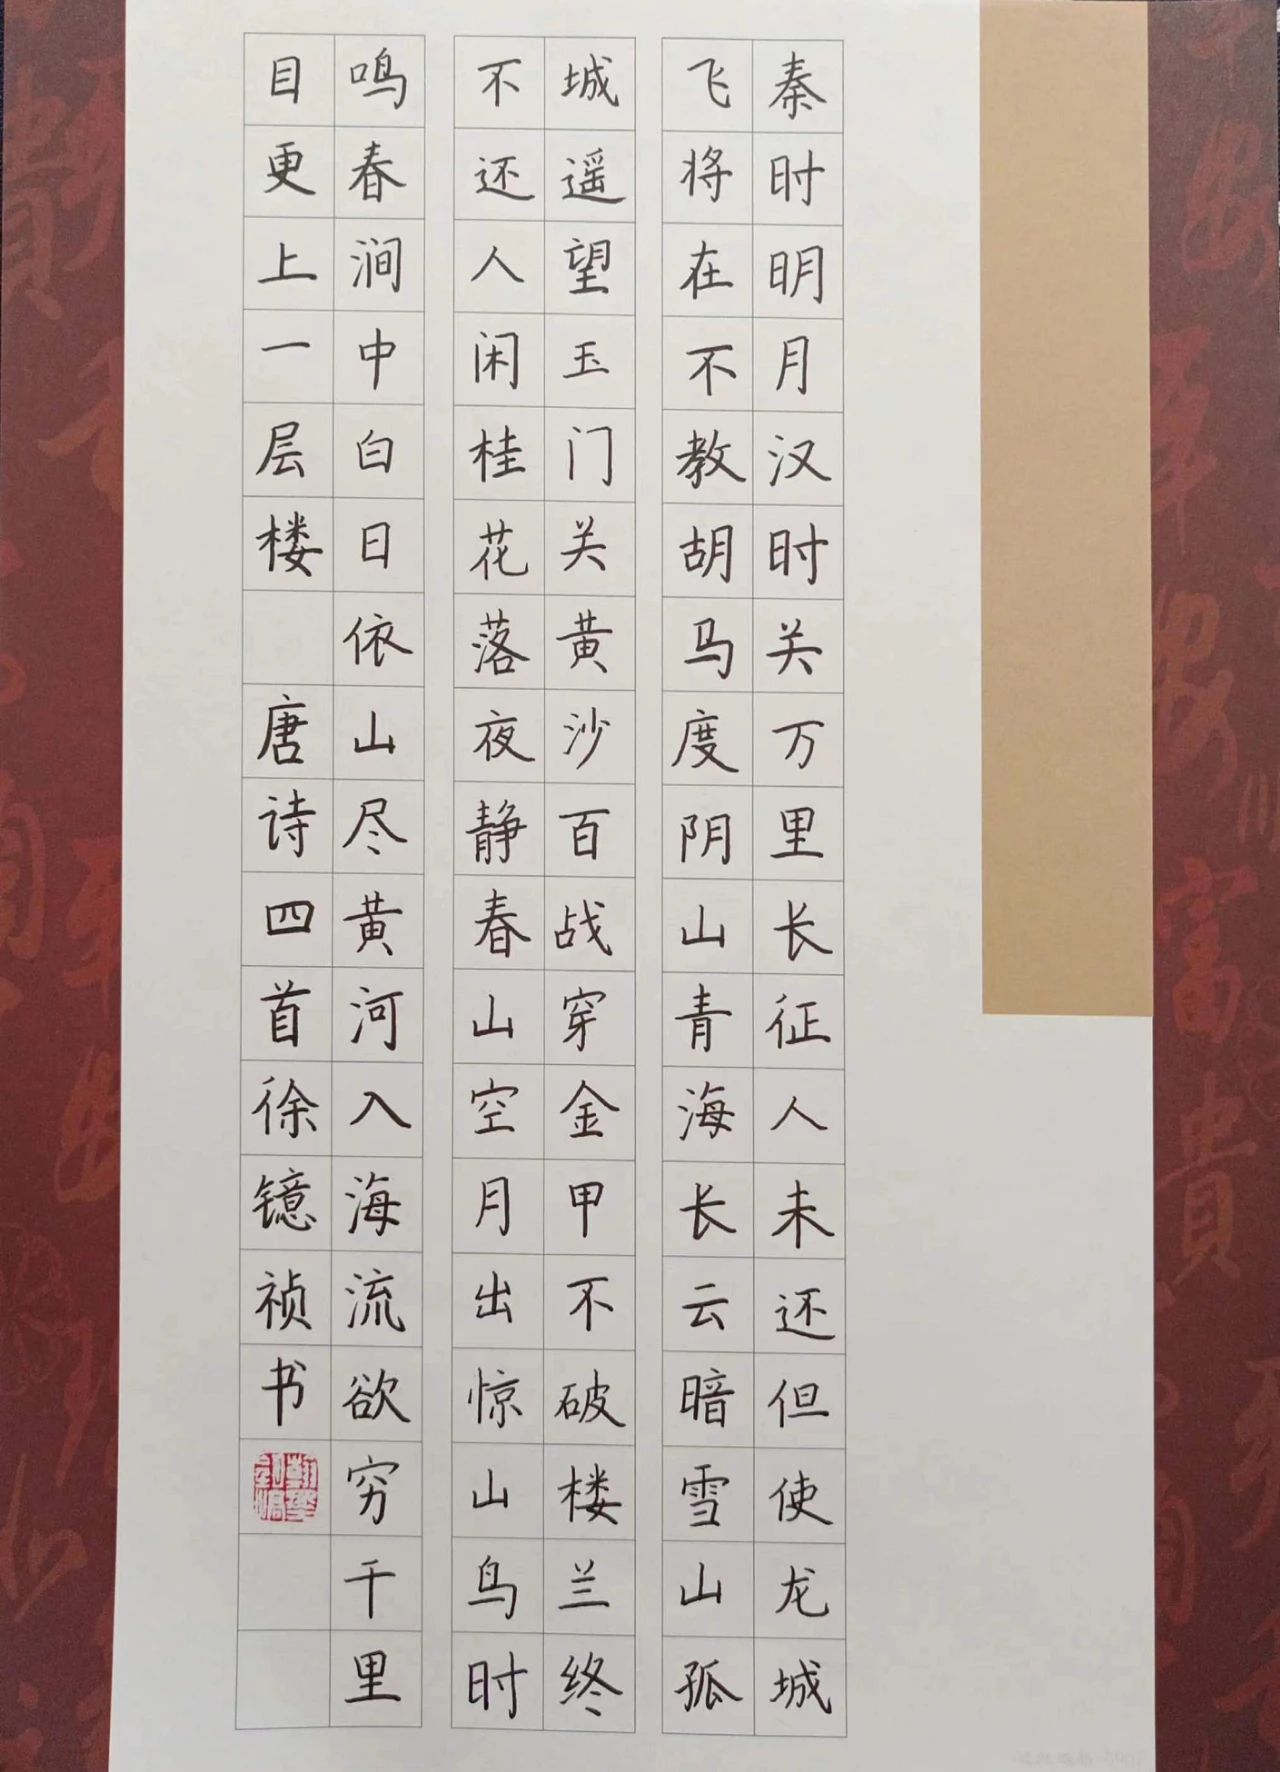 秦时明月汉时关万里长征人未还但使龙城
飞将在不教胡马度阴山青海长云暗雪山孤
城遥望玉门关黄沙百战穿金甲不破楼兰终
不还人闲桂花落夜静春山空月出惊山鸟时
鸣春涧中白日依山尽黄河入海流欲穷千里
目更上一层楼 唐诗四首徐镱祯书